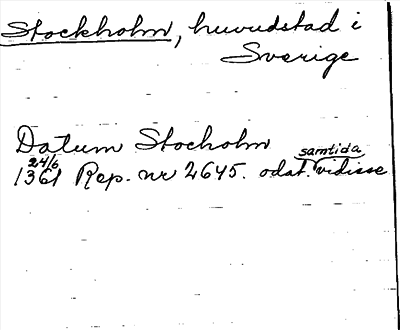 Stockholm, huvudstad i
Sverige
Datum Stocholm
24/6 samtida
1361 Rep. nr 2645. odat. vidisse